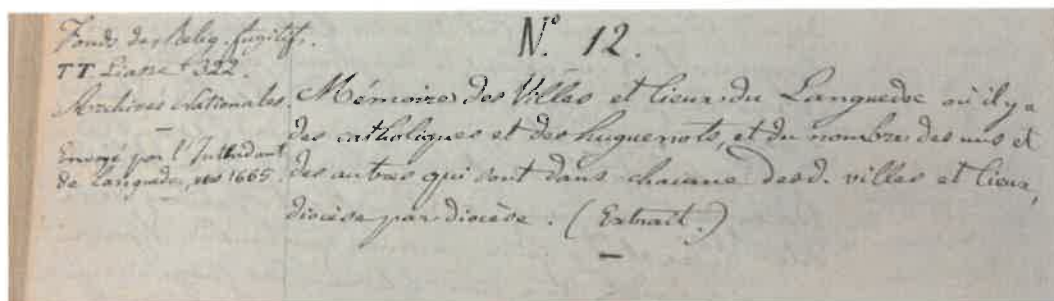 Fonds des Relig. fugitifs.
TT. Liasse 322.
Archives Nationales.
Envoyé par l'Intendant
de Languedoc, vers 1665
N.º 12.
Mémoire des Villes et lieux du Languedoc où il y a
des catholiques et des huguenots, et du nombre des uns et
des autres qui sont dans chacune desd. villes et lieux,
diocèse par diocèse. (Extrait.)